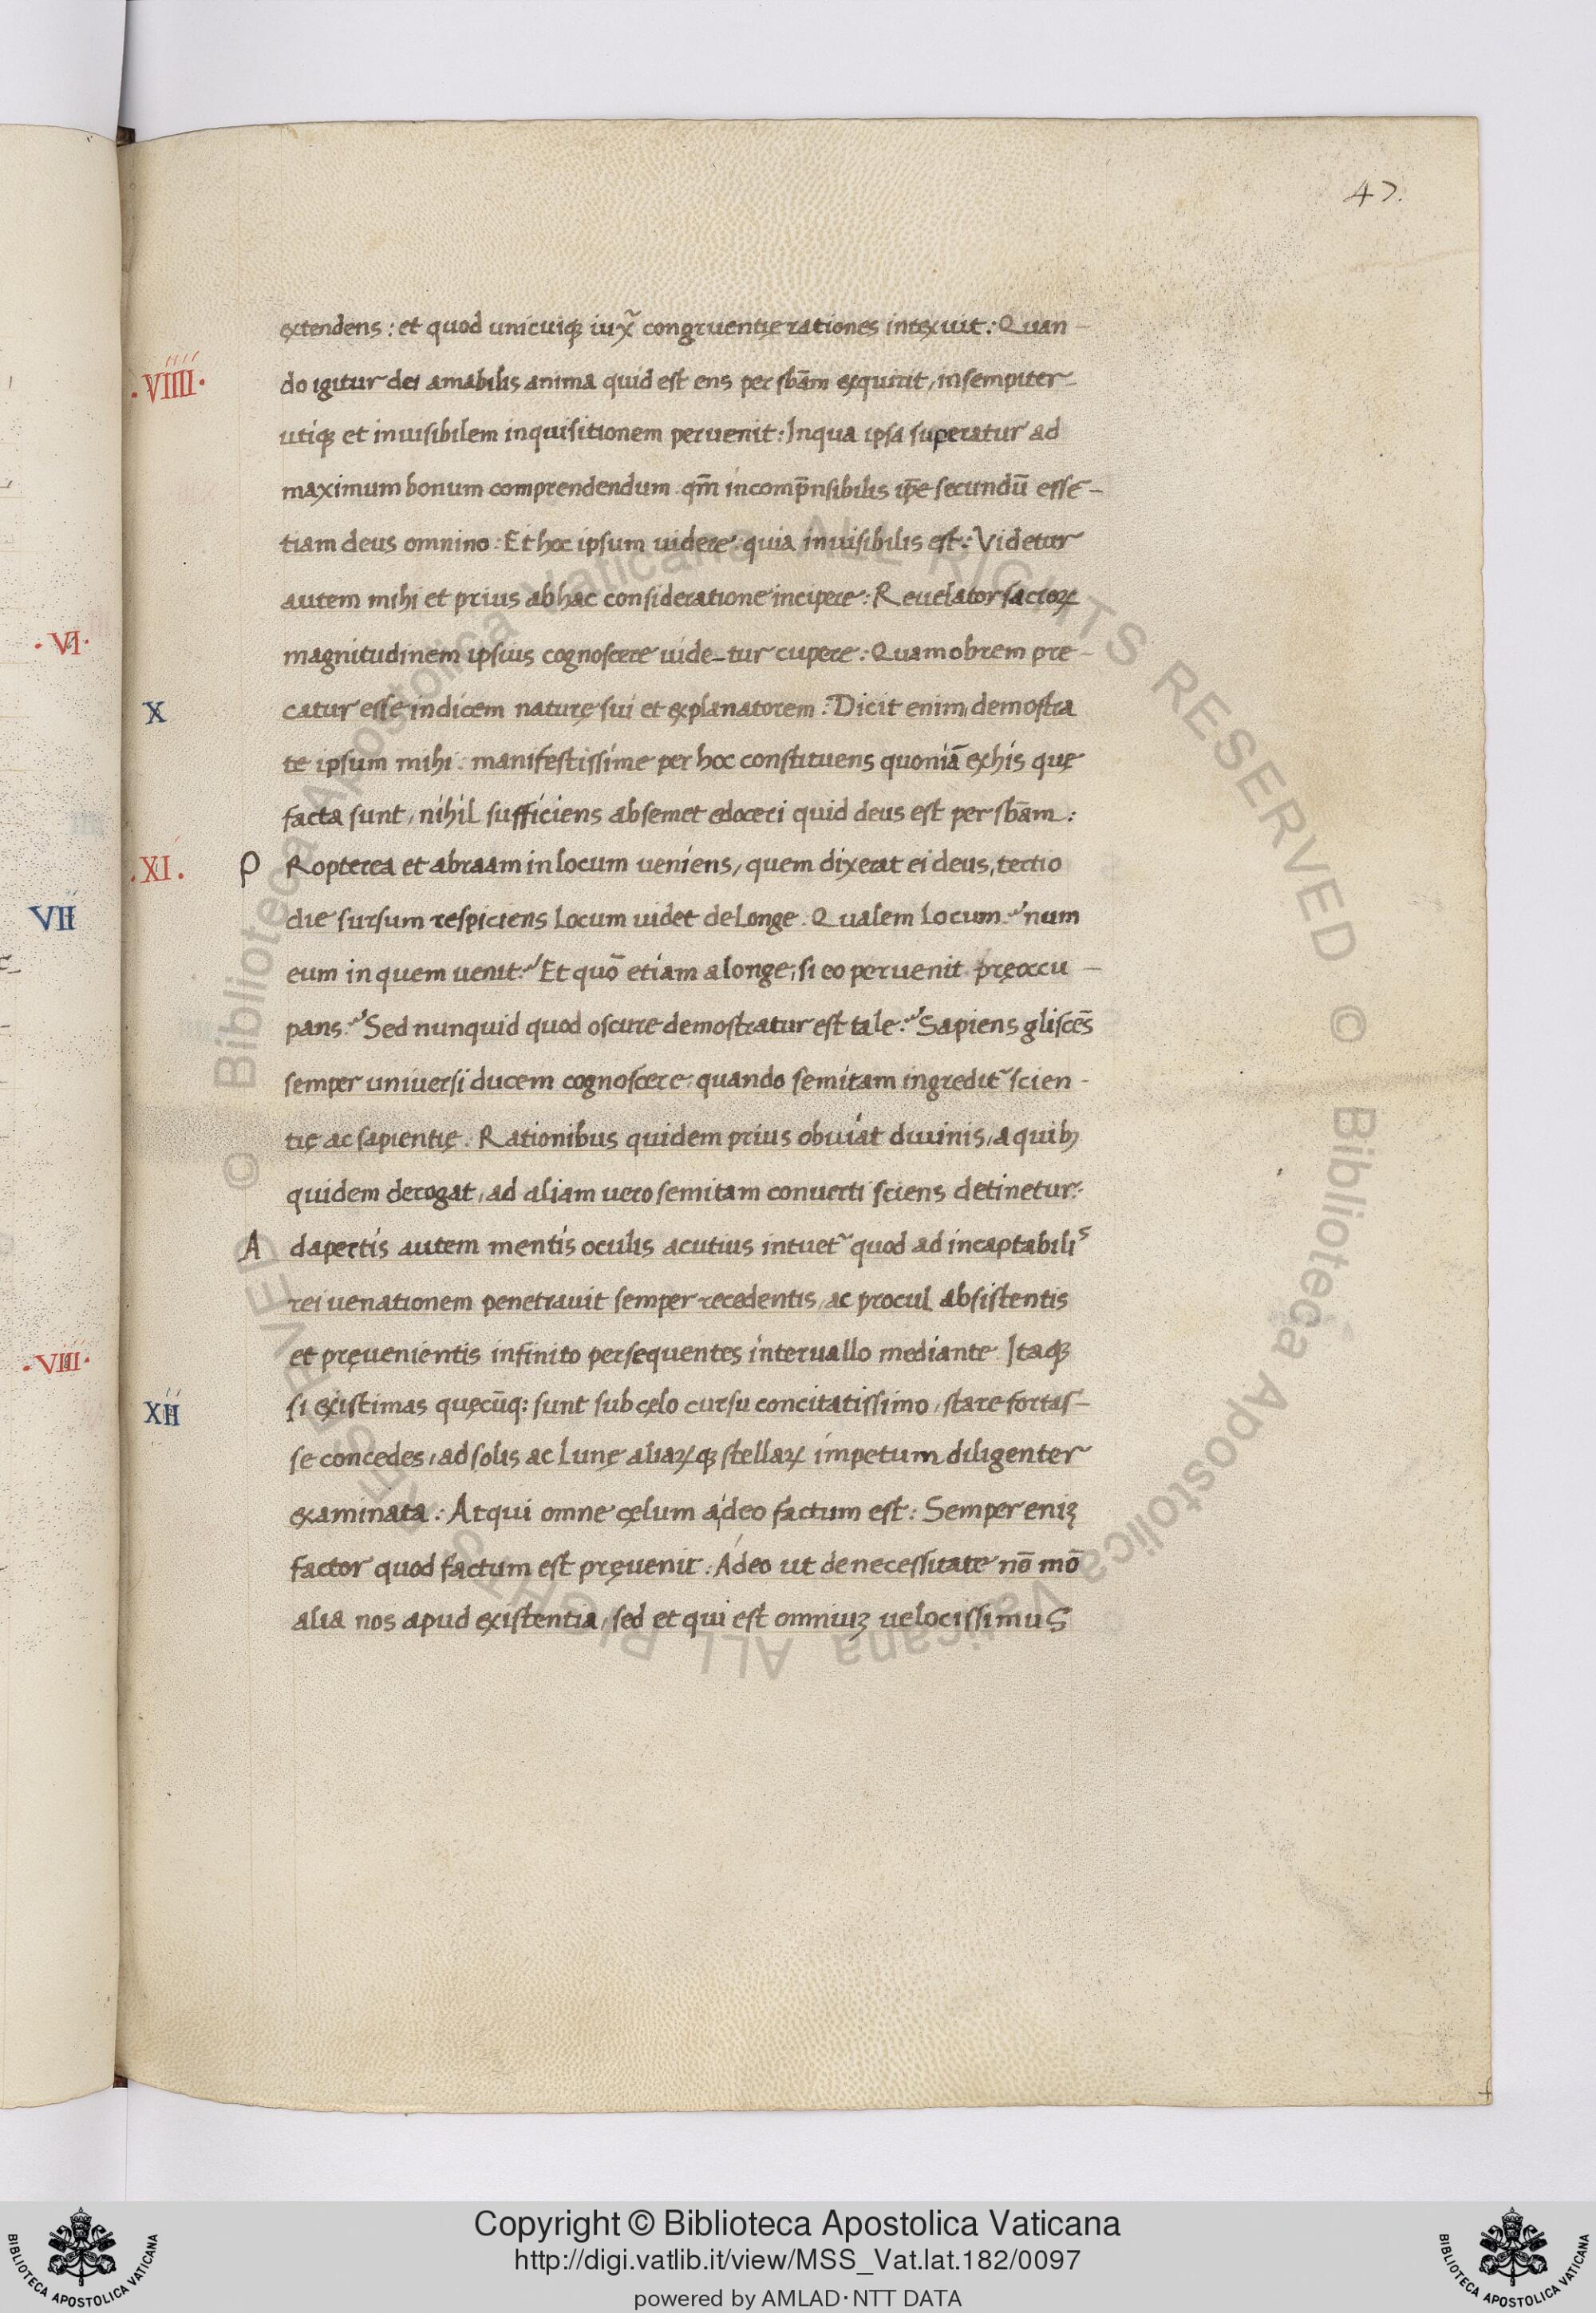 47.
extendens : et quod unicuiqꝫ iux̃ congruentię rationes intexuit : Quan-
.VIIII.
do igitur dei amabilis anima quid est ens per sb̄am exquirit, in sempiter-
utiqꝫ et inuisibilem inquisitionem peruenit : Inqua ipsa superatur ad
maximum bonum comprendendum . qm̄ incomp̄nsibilis ip̄e secundū esse-
tiam deus omnino : Et hoc ipsum uidere : quia inuisibilis est : Videtur
autem mihi et prius ab hac consideratione incipere : Reuelator sacroꝝ
.VI.
magnitudinem ipsius cognoscere uide-tur cupere : Quamobrem pre-
X
catur esse indicem naturę sui et explanatorem : Dicit enim, demostra
te ipsum mihi : manifestissime per hoc constituens quoniā exhis quę
facta sunt, nihil sufficiens absemet edoceri quid deus est per sb̄am :
.XI.
P Ropterea et abraam in locum ueniens, quem dixerat ei deus, tertio
VII
die sursum respiciens locum uidet de longe . Qualem locum ? num
eum in quem uenit ? Et quō etiam a longe, si eo peruenit pręoccu-
pans ? Sed nunquid quod oscure demostratur est tale ? Sapiens gliscēs
semper uniuersi ducem cognoscere, quando semitam ingredit̃ scien-
tię ac sapientię . Rationibus quidem prius obuiat diuinis, a quibꝫ
quidem derogat, ad aliam uero semitam conuerti sciens detinetur :
A dapertis autem mentis oculis acutius intuet̃ quod ad incaptabilis
rei uenationem penetrauit semper recedentis, ac procul absistentis
.VIII.
et pręuenientis infinito persequentes interuallo mediante . Itaqꝫ
XII
si existimas quęcūq: sunt sub cęlo cursu concitatissimo, stare fortas-
se concedes, ad solis ac lunę aliaꝝqꝫ stellaꝝ impetum diligenter
examinata : Atqui omne cęlum adeo factum est : Semper eniꝫ
factor quod factum est pręuenit : Adeo ut de necessitate nō mō
alia nos apud existentia, sed et qui est omniuꝫ uelocissimus
© Biblioteca Apostolica Vaticana ALL RIGHTS RESERVED © Biblioteca Apostolica Vaticana ALL RIGHTS RESERVED
Copyright © Biblioteca Apostolica Vaticana
http://digi.vatlib.it/view/MSS_Vat.lat.182/0097
powered by AMLAD·NTT DATA
BIBLIOTECA APOSTOLICA VATICANA
BIBLIOTECA APOSTOLICA VATICANA